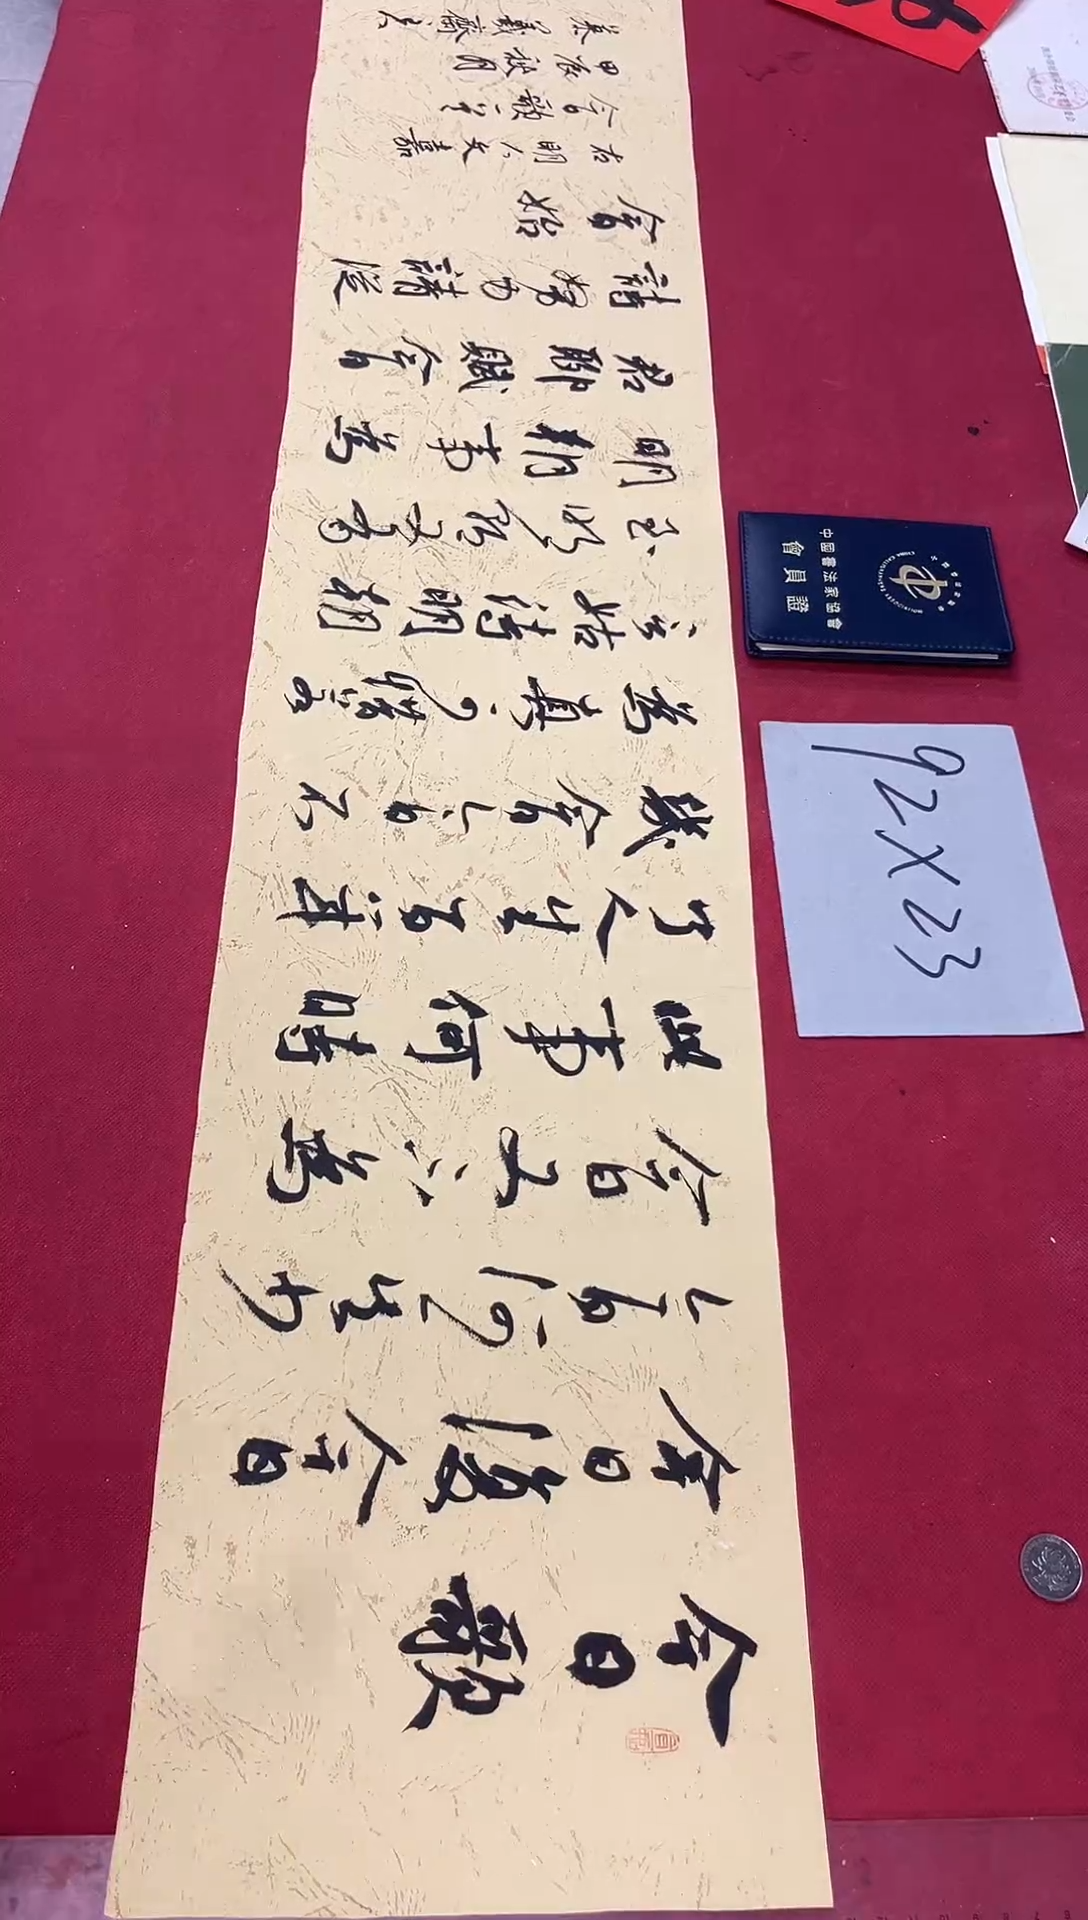 今日歌
今日復今日
今日何其少
今日又不為
此事何時
了人生百年
幾今日今日不
為真可惜若
言姑待明朝
至明朝又有
明朝事為
君聊賦今日
詩努力請從
今日始
右明人文嘉
今日歌一首
甲辰秋月
中國書法家協會
會員證
92X23